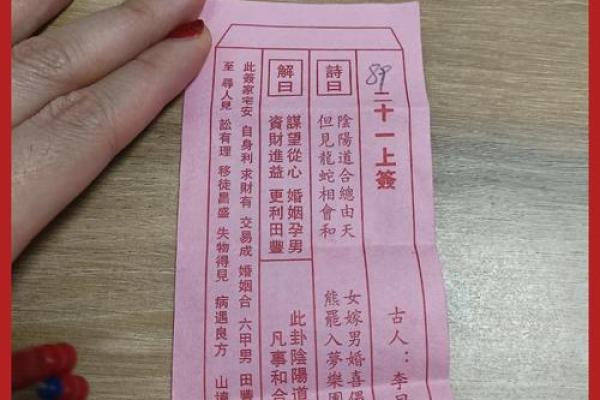 89
二十一上簽
古人：李
詩曰
陰陽道合總由天 女嫁男婚喜
但見龍蛇相會和 熊羆入夢樂
解曰
謀望從心 婚姻孕男
資財進益 更利田豐
此卦陰陽道
凡事和合
此簽家宅安 自身利 求財有 交易成 婚姻合 六甲男 田
至 尋人見 訟有理 移徒昌盛 失物得見 病遇良方 山